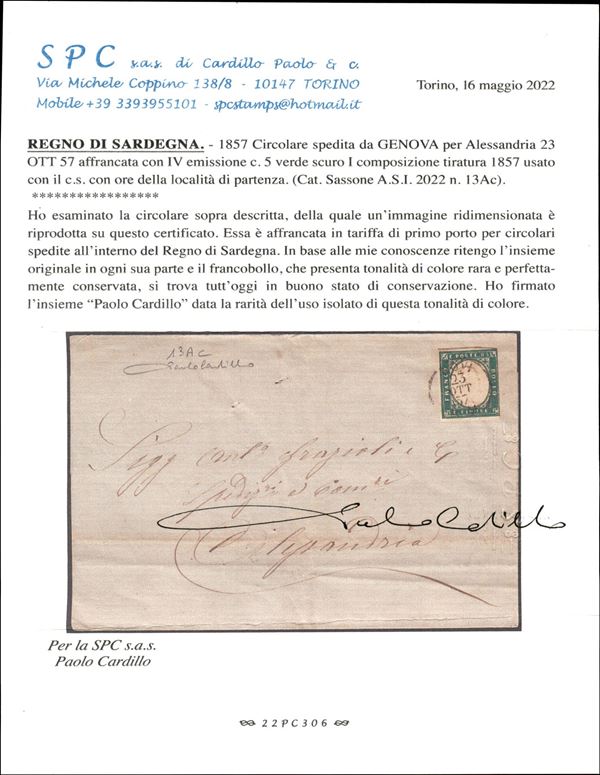 S P C s.a.s. di Cardillo Paolo & c.
Via Michele Coppino 138/8 - 10147 TORINO
Mobile +39 3393955101 - spcstamps@hotmail.it
Torino, 16 maggio 2022
REGNO DI SARDEGNA. - 1857 Circolare spedita da GENOVA per Alessandria 23
OTT 57 affrancata con IV emissione c. 5 verde scuro I composizione tiratura 1857 usato
con il c.s. con ore della località di partenza. (Cat. Sassone A.S.I. 2022 n. 13Ac).
*****************
Ho esaminato la circolare sopra descritta, della quale un'immagine ridimensionata è
riprodotta su questo certificato. Essa è affrancata in tariffa di primo porto per circolari
spedite all'interno del Regno di Sardegna. In base alle mie conoscenze ritengo l'insieme
originale in ogni sua parte e il francobollo, che presenta tonalità di colore rara e perfetta-
mente conservata, si trova tutt'oggi in buono stato di conservazione. Ho firmato
l'insieme "Paolo Cardillo" data la rarità dell'uso isolato di questa tonalità di colore.
13AC
Paolo Cardillo
FRANCO
BOLLO
23
OTT
Sigg
Frazioli e C
Alessandria
Paolo Cardillo
Per la SPC s.a.s.
Paolo Cardillo
22PC306